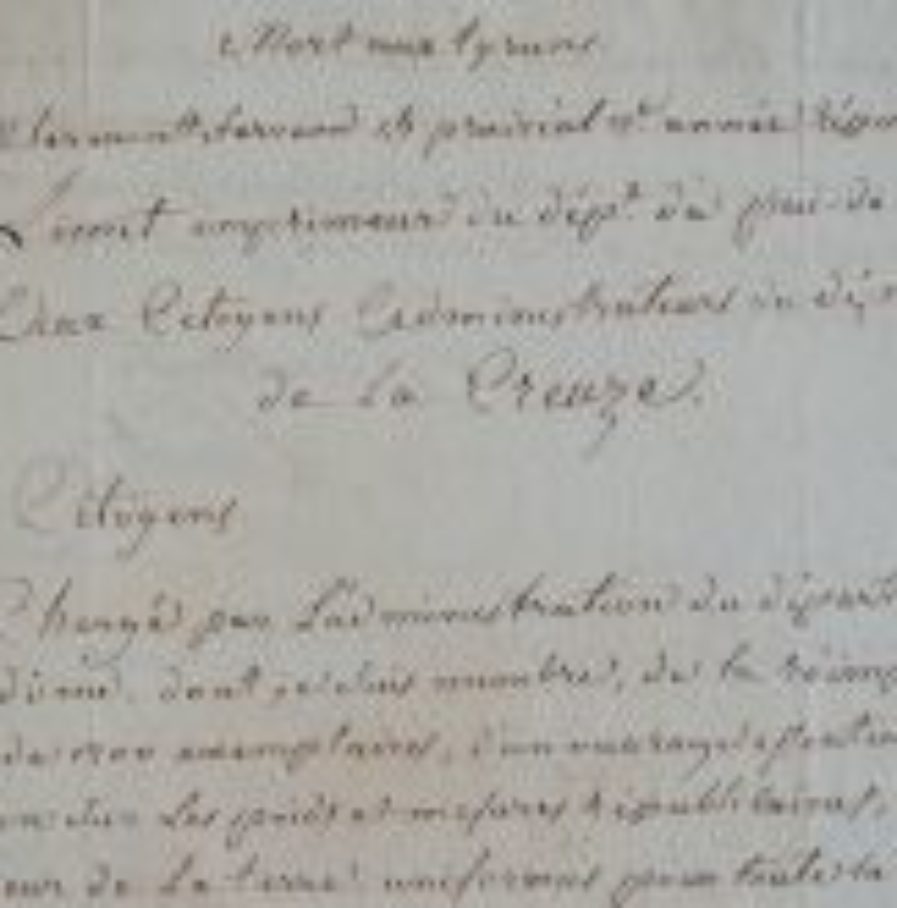 Mort aux tyrans
Clermont-ferrand prairial 2e année répu
Limet imprimeur du dépt du puy-de
aux Citoyens administrateurs du dép
de la Creuze.
Citoyens
Chargé par L'administration du départ
dont je suis membre, de la réimp
de exemplaires, d'un ouvrage
sur les poids et mesures républicaines,
de la terre uniformes pour toute la